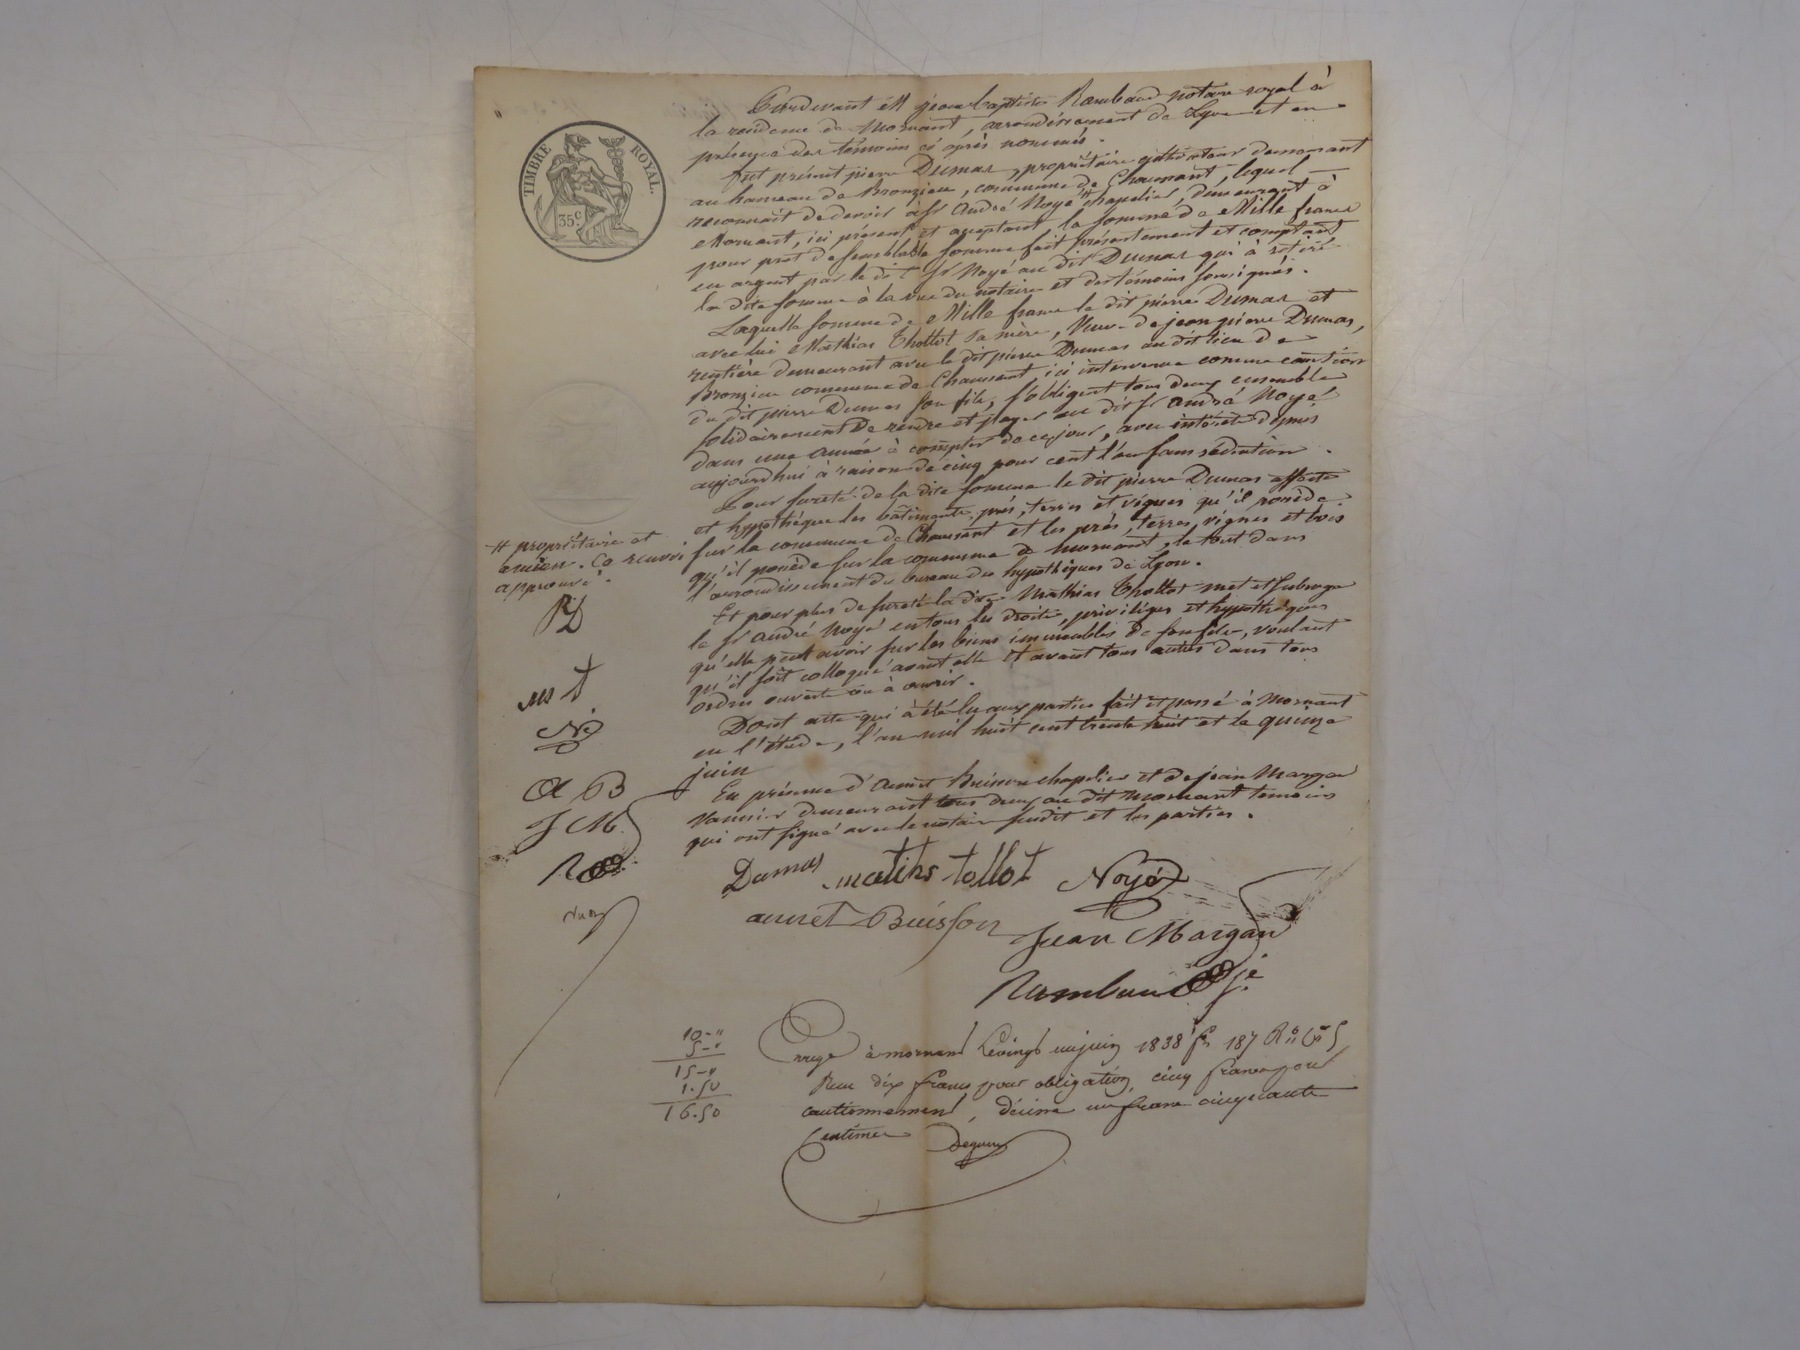 TIMBRE ROYAL.
35 c.
Pardevant Me jean baptiste Rambaud notaire royal à
la residence de Mornant, arrondissement de Lyon et en
présence des témoins ci après nommés.
fut présent pierre Dumas, propriétaire cultivateur demeurant
au hameau de Bronzieu, commune de Chaussant, lequel
reconnait de devoir à sr André Noyé # chapelier, demeurant à
Mornant, ici présent et acceptant la somme de Mille francs
pour pret de semblable somme fait présentement et comptant
en argent par le dit sr Noyé au dit Dumas qui à retiré
la dite somme à la vue du notaire et des témoins sousignés.
Laquelle somme de Mille francs le dit pierre Dumas et
avec lui Mathias Thollot sa mère, Veuve de jean pierre Dumas,
rentière demeurant avec le dit pierre Dumas au dit lieu de
Bronzieu commune de Chaussant ici intervenue comme caution
du dit pierre Dumas son fils, s'obligent tous deux ensemble
solidairement de rendre et payer au dit sr André Noyé
dans une année à compter de ce jour, avec intérêts depuis
aujourdhui à raison de cinq pour cent l'an sans rédiation.
Pour sureté de la dite somme le dit pierre Dumas affecte
et hypothéque les bâtiments, prés, terres et vignes qu'il possède
sur la commune de Chaussant et les prés, terres, vignes et bois
qu'il possède sur la commune de Mornant, le tout dans
l'arrondissement du bureau des hypothèques de Lyon.
Et pour plus de sureté la dite Mathias Thollot met et subroge
le sr André Noyé en tous les droits, priviléges et hypothéques
qu'elle peut avoir sur les biens immeubles de son fils, voulant
qu'il soit colloqué avant elle et avant tous autres dans tous
ordres ouverts ou à ouvrir.
Dont acte qui à été lu aux parties fait et passé à Mornant
en l'étude, l'an mil huit cent trente huit et le quinze
juin
En présence d'aunet Buisson chapelier et de jean Margan
vannier demeurant tous deux au dit Mornant temoins
qui ont signé avec le notaire susdit et les parties.
# propriétaire et
ancien. Ce renvoi
approuvé.
PD
m t
N
A B
J M.
R
Dumas matihs tollot Noyé
aunet Buisson
Jean Margan
Rambaud
10-"
5-"
15-"
1.50
16.50
Enregé à mornant Levingt un juin 1838 fo 187
Reçu dix francs pour obligation, cinq francs pour
cautionnement, décime un franc cinquante
Centimes